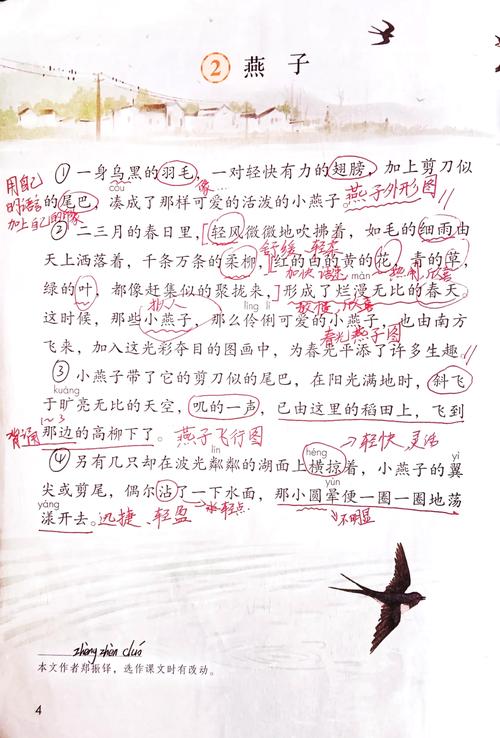 2 燕子
① 一身乌黑的羽毛，一对轻快有力的翅膀，加上剪刀似
用自己
的语言
加上自己的像
像…
còu
的尾巴，凑成了那样可爱的活泼的小燕子。燕子外形图
② 二三月的春日里，轻风微微地吹拂着，如毛的细雨由
舒缓 轻柔
天上洒落着，千条万条的柔柳，红的白的黄的花，青的草，
加快语速 màn 热制 欣喜
绿的叶，都像赶集似的聚拢来，形成了烂漫无比的春天。
拟人 líng lì 放慢 欣喜
这时候，那些小燕子，那么伶俐可爱的小燕子，也由南方
春光燕子图
飞来，加入这光彩夺目的图画中，为春光平添了许多生趣。
③ 小燕子带了它的剪刀似的尾巴，在阳光满地时，斜飞
kuàng
于旷亮无比的天空，叽的一声，已由这里的稻田上，飞到
背诵
那边的高柳下了。燕子飞行图 轻快 灵活
lín héng yì
④ 另有几只却在波光粼粼的湖面上横掠着，小燕子的翼
yùn
尖或剪尾，偶尔沾了一下水面，那小圆晕便一圈一圈地荡
yàng
漾开去。迅捷、轻盈 水轻点 不明显
zhèng zhèn duó
本文作者郑振铎，选作课文时有改动。
4